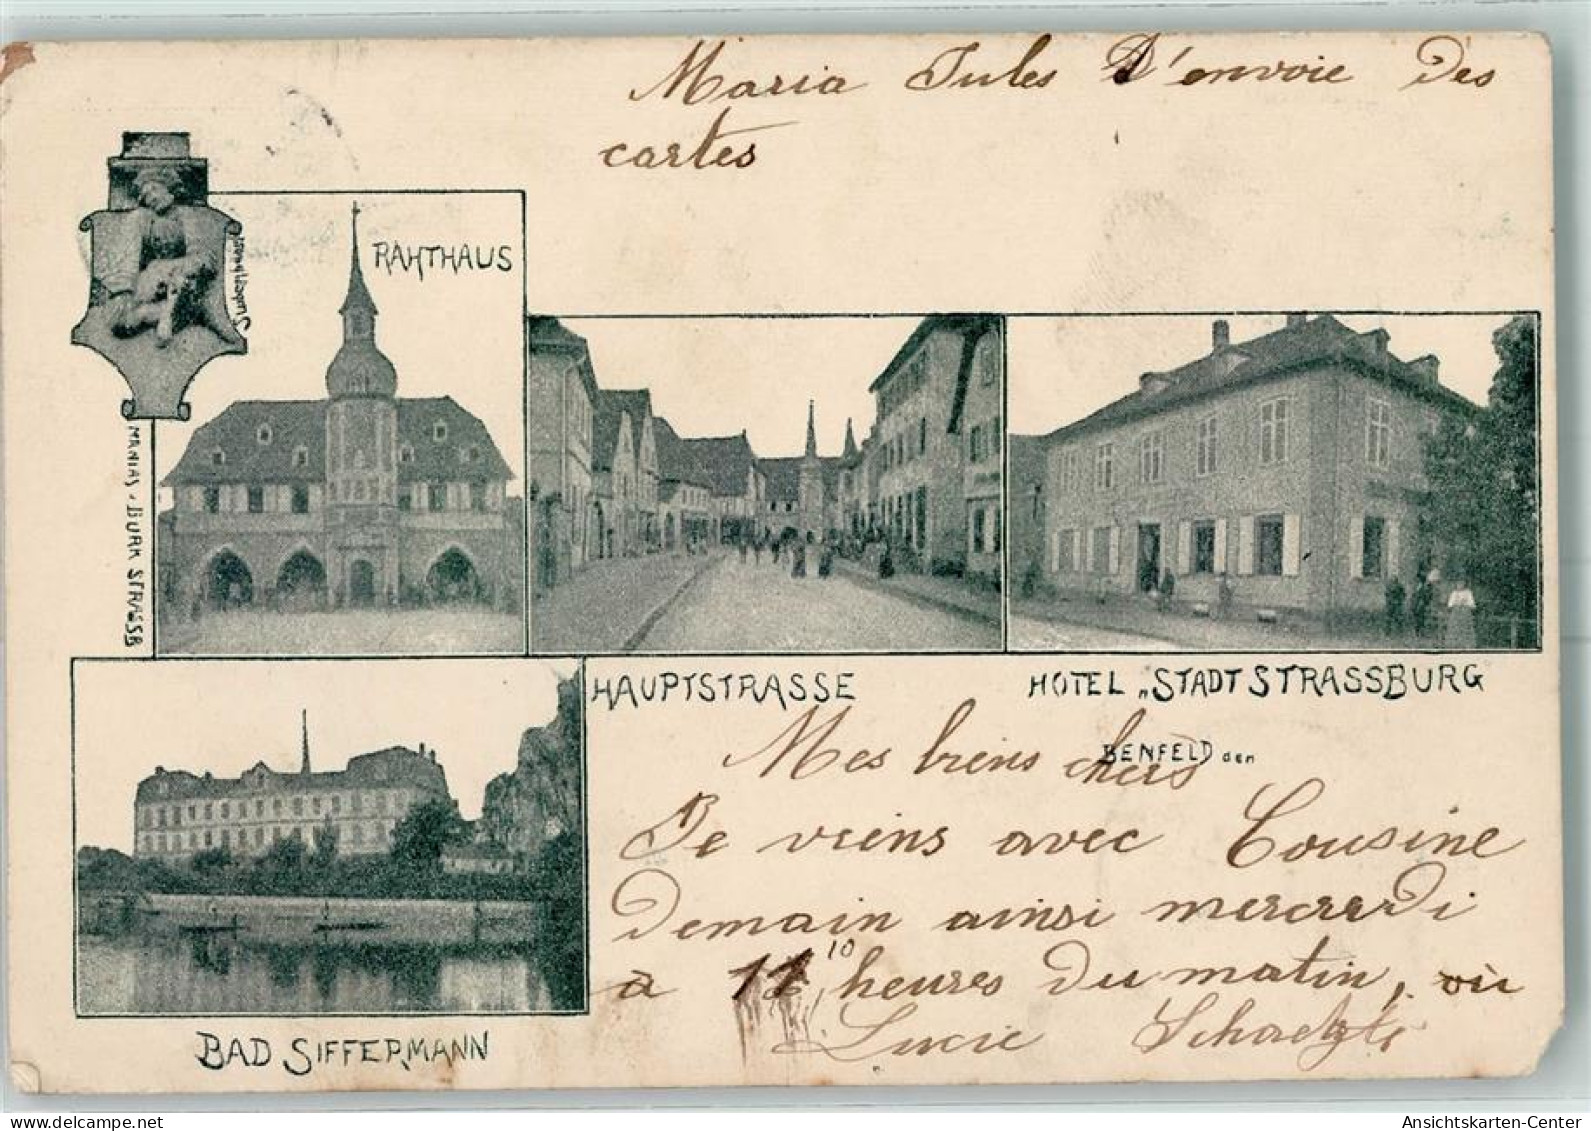 Maria Jules D'envoie Des
cartes
RAHTHAUS
MANIAS & BURK STRASSB
HAUPTSTRASSE
HOTEL „STADT STRASSBURG
BENFELD den
Mes biens chers
Je viens avec Cousine
Demain ainsi mercredi
à 11 10 heures Du matin, où
Lucie
BAD SIFFERMANN
delcampe.net
Ansichtskarten-Center